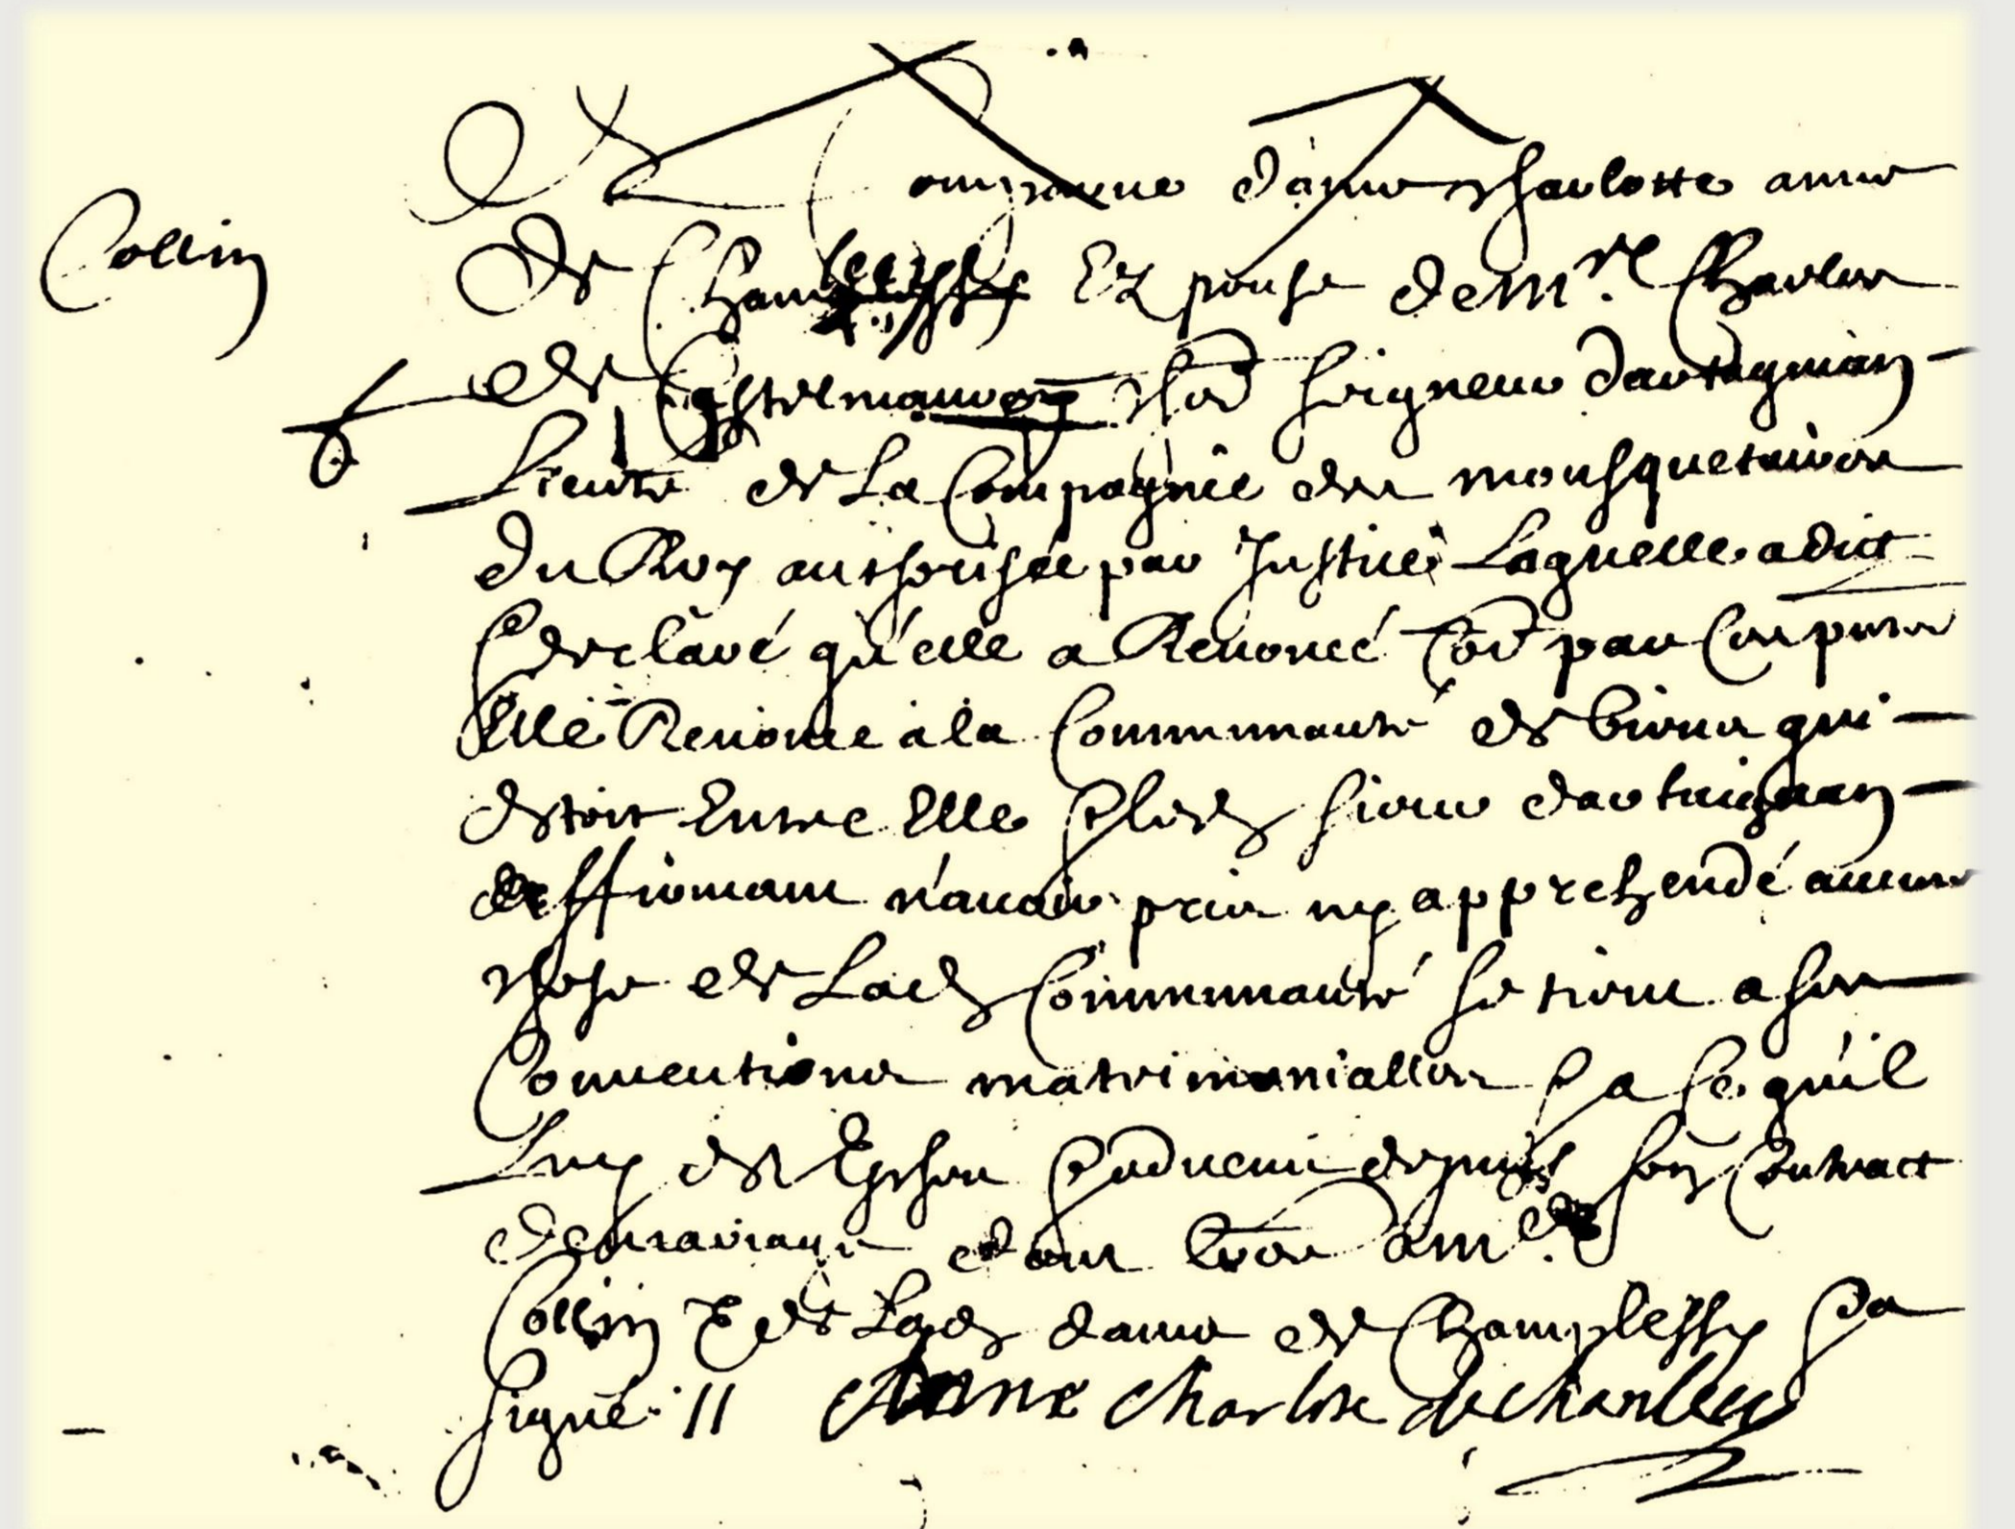 Collin
Est Comparue dame Charlotte anne
de Chamlessy Espouse de Mre Charles
de Castelmauron Cher seigneur dartagnian
Lieutt de La Compagnie des mousquetaires
du Roy authorisée par Justice Laquelle a dict
& declaré qu'elle a Renoncé & par Ces pntes
Elle Renonce a la Communauté de biens qui
estoit Entre Elle & led sieur dartaignan
affirmant n'auoir pris ny apprehendé aucune
chose de Lad Communauté se tient a ses
Conuentions matrimonialles & a Ce qu'il
Luy est Escheu & aduenu depuis son Contract
de mariage dont Lres a Me
Collin P de Lad dame de Champlessy & a
signé //
Anne Charlote de Chanlecy